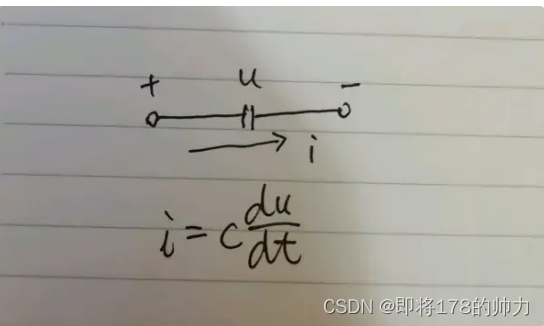 + u -
i
i = c du/dt
CSDN @即将178的帅力